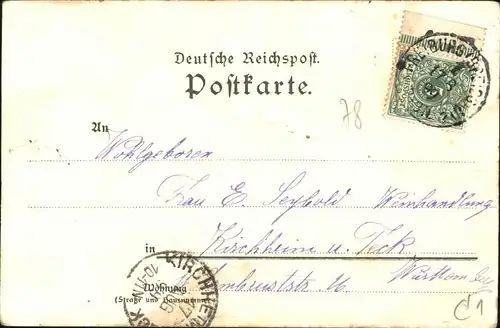 Deutsche Reichspost.
Postkarte.
78
An
Wohlgeboren
Frau E. Seybold Weinhandlung
in Kirchheim u. Teck
Wohnung
(Straße und Hausnummer)
Württembg
KIRCHHEIM
C1